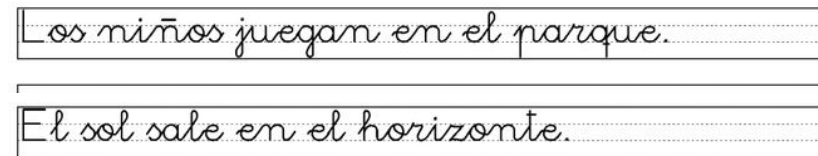 Los niños juegan en el parque.
El sol sale en el horizonte.